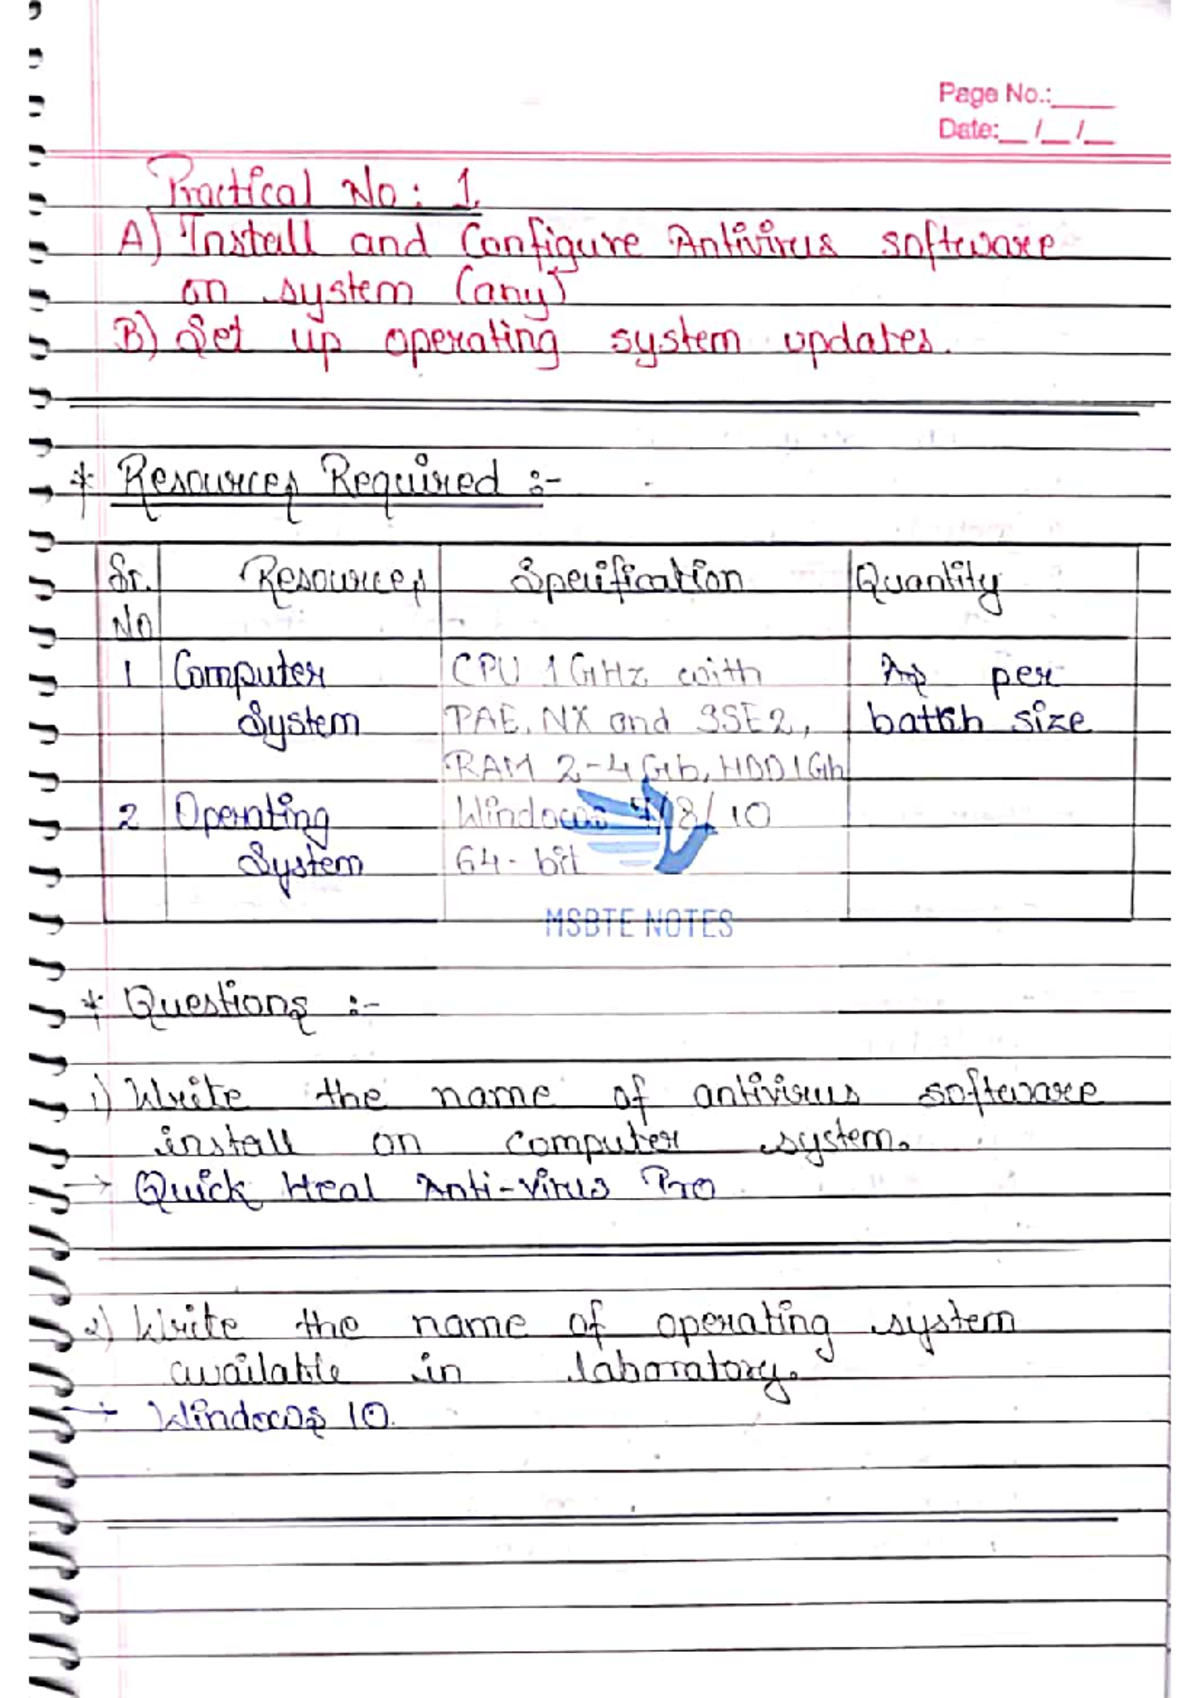 Page No.:
Date: / /
Practical No: 1.
A) Install and Configure Antivirus software
on system (any)
B) Set up operating system updates.
* Resources Required :-
Sr. No Resources Specification Quantity
1 Computer System CPU 1 GHz with PAE, NX and SSE2, RAM 2-4 Gb, HDD 1 Gb As per battch size
2 Operating System Windows 7/8/10 64-bit
MSBTE NOTES
* Questions :-
1) Write the name of antivirus software
install on computer system.
→ Quick Heal Anti-virus Pro
2) Write the name of operating system
available in laboratory.
→ Windows 10.